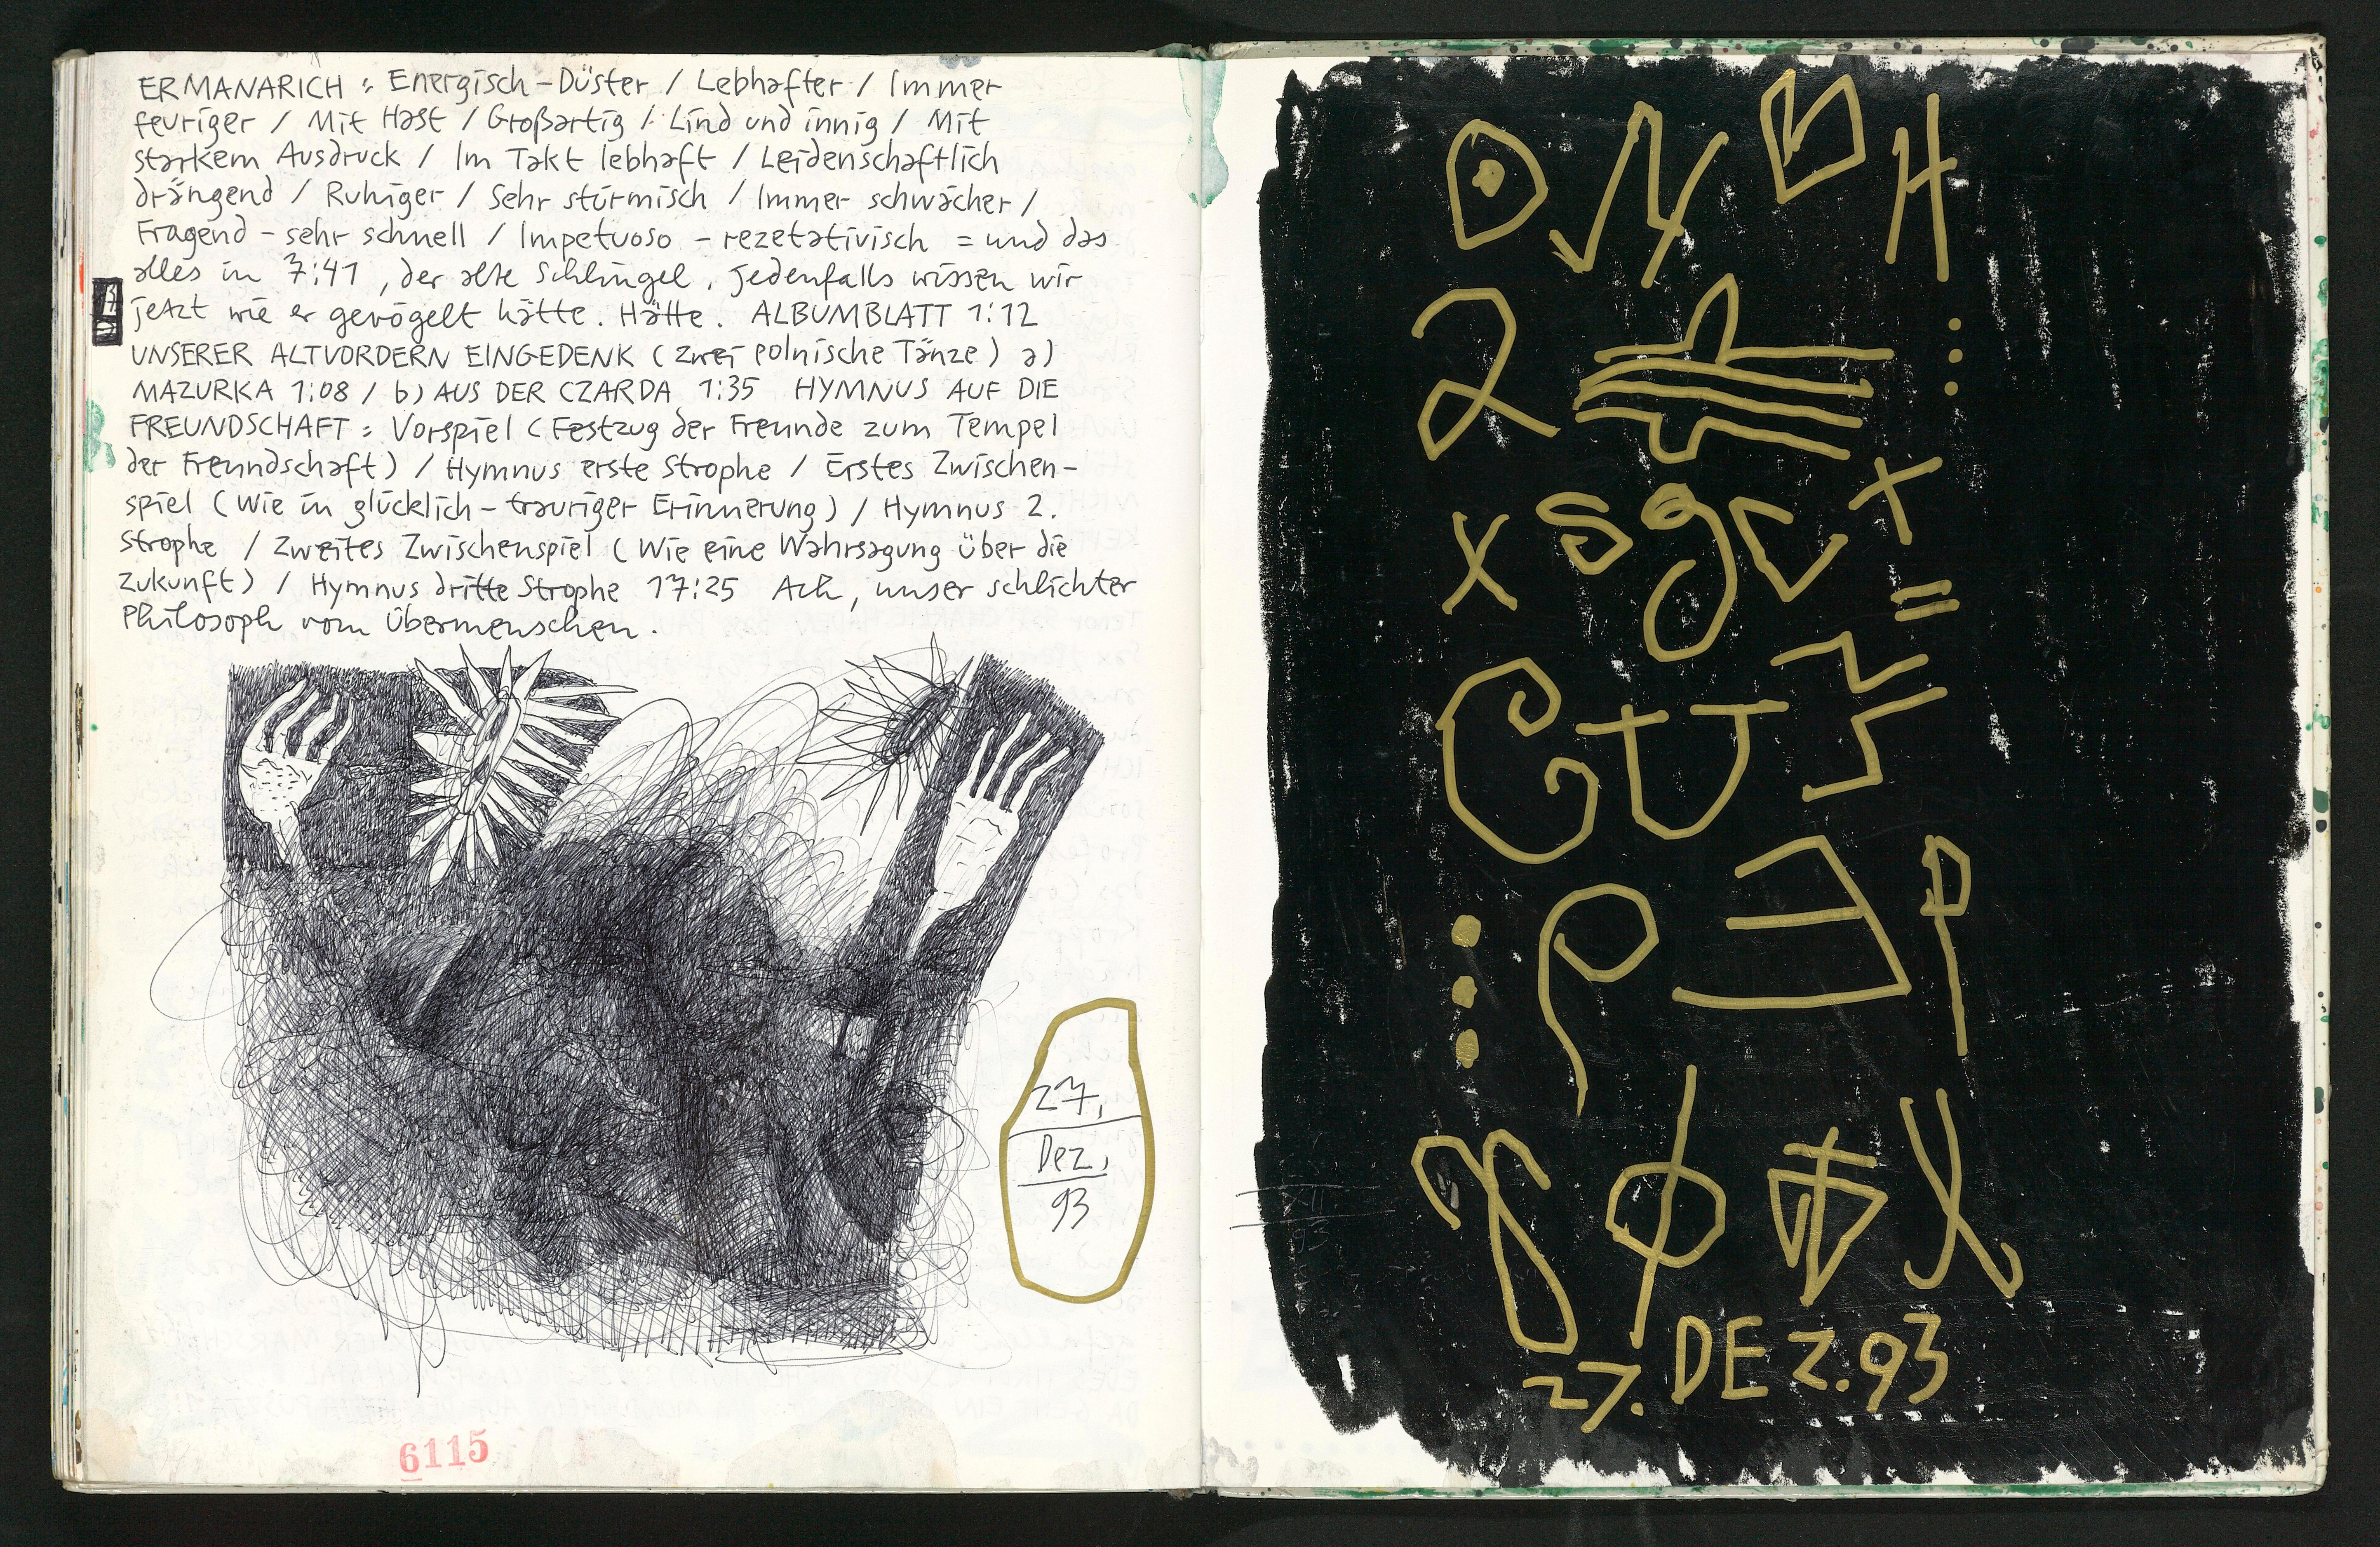 ERMANARICH : Energisch-Düster / Lebhafter / Immer
feuriger / Mit Hast / Großartig / Lind und innig / Mit
starkem Ausdruck / Im Takt lebhaft / Leidenschaftlich
drängend / Ruhiger / Sehr stürmisch / Immer schwächer /
Fragend - sehr schnell / Impetuoso - rezetativisch = und das
alles in 7:41, der alte Schlingel, jedenfalls wissen wir
jetzt wie er gevögelt hätte. Hätte. ALBUMBLATT 1:12
UNSERER ALTVORDERN EINGEDENK (Zwei Polnische Tänze) a)
MAZURKA 1:08 / b) AUS DER CZARDA 1:35 HYMNUS AUF DIE
FREUNDSCHAFT : Vorspiel (Festzug der Freunde zum Tempel
der Freundschaft) / Hymnus erste Strophe / Erstes Zwischen-
spiel (Wie in glücklich-trauriger Erinnerung) / Hymnus 2.
Strophe / Zweites Zwischenspiel (Wie eine Wahrsagung über die
Zukunft) / Hymnus dritte Strophe 17:25 Ach, unser schlichter
Philosoph vom Übermenschen.
27.
Dez.
93
6115
27. DEZ. 93